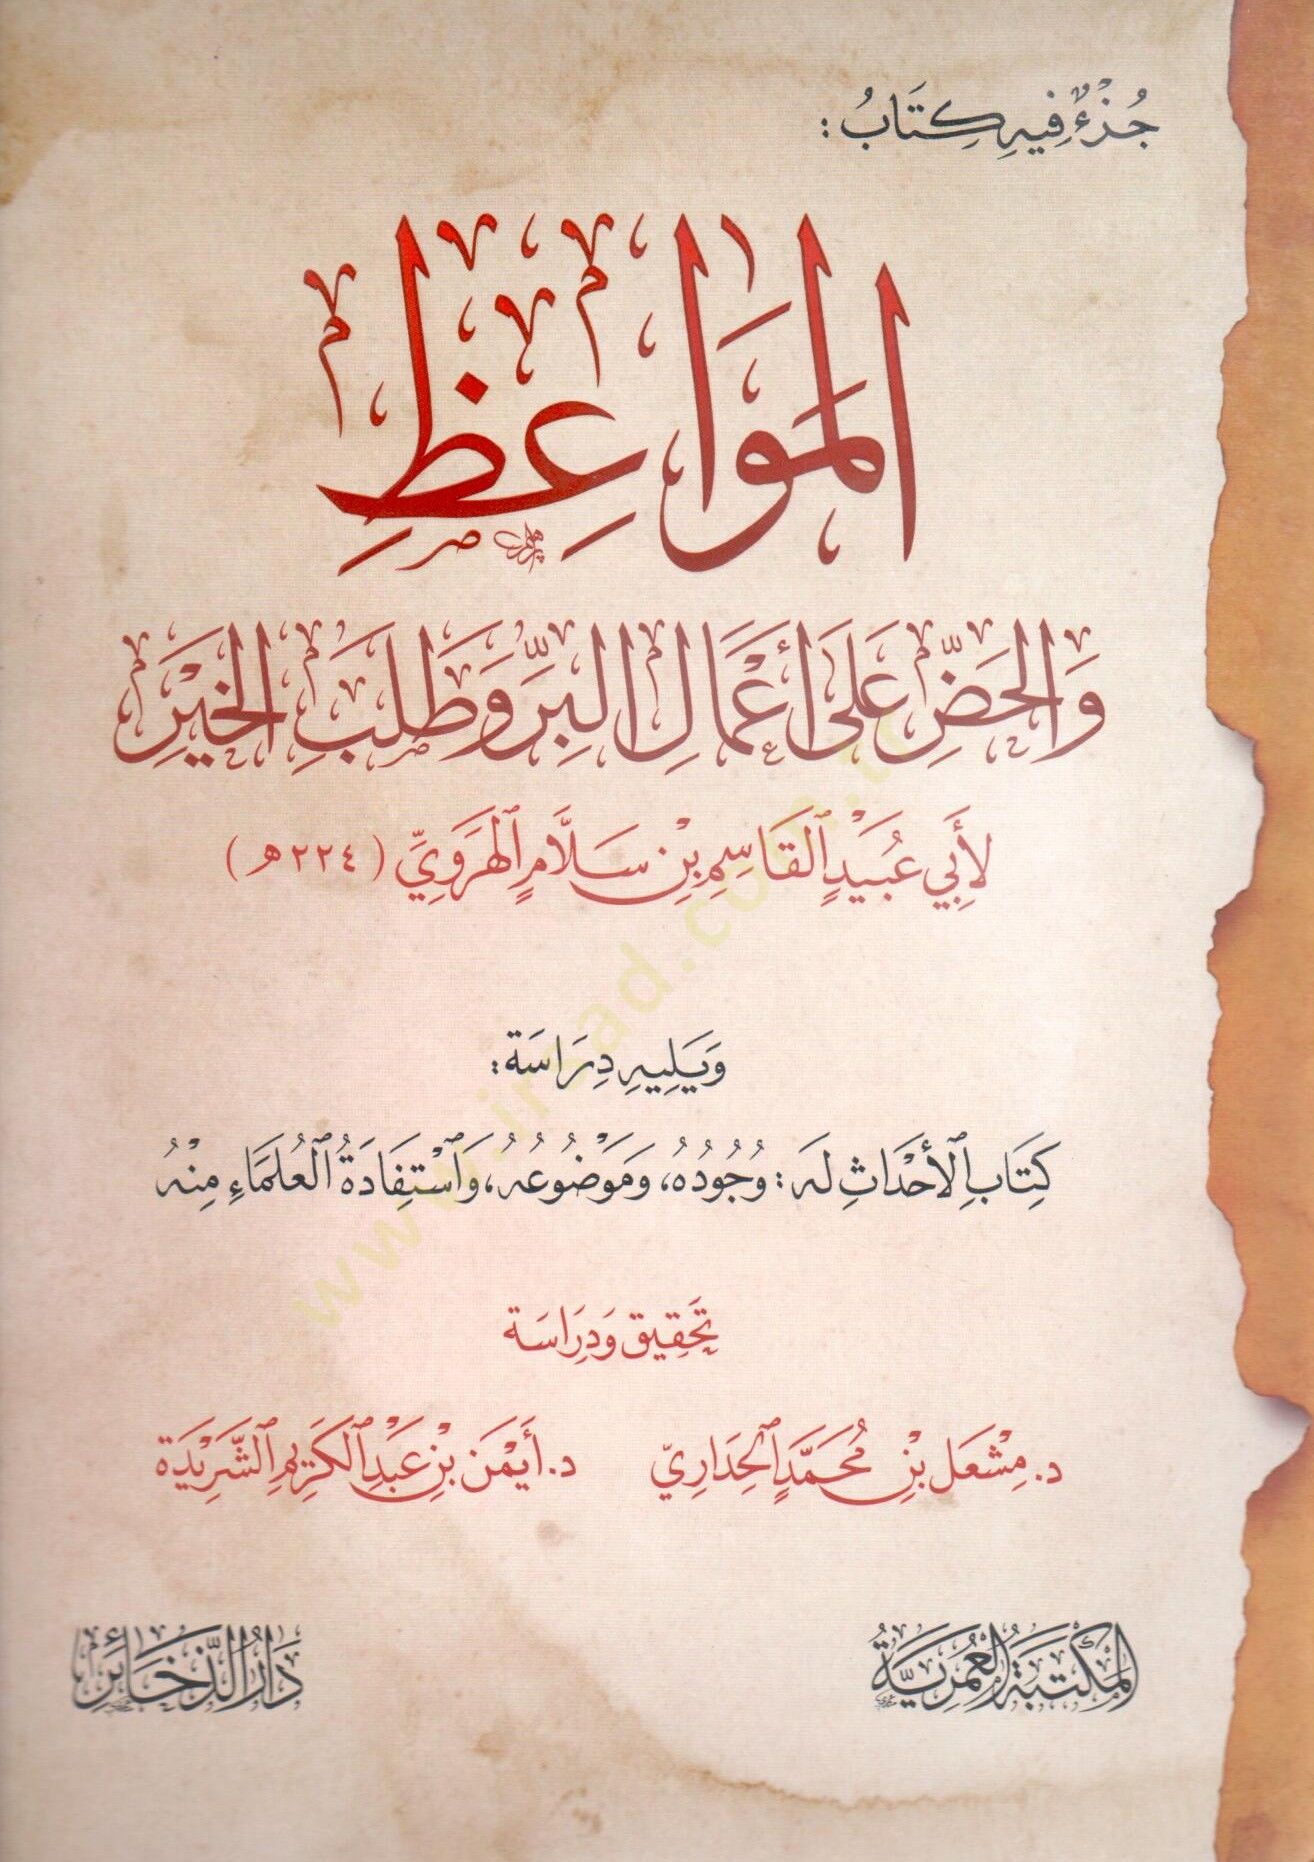 جُزْءٌ فِيهِ كِتَابُ :
المَوَاعِظِ
وَالحَضِّ عَلَى أَعْمَالِ البِرِّ وَطَلَبِ الخَيْرِ
لِأَبِي عُبَيْدٍ القَاسِمِ بْنِ سَلَّامٍ الهَرَوِيِّ ( ٢٢٤ هـ )
وَيَلِيهِ دِرَاسَة :
كِتَابِ الأَحْدَاثِ لَهُ : وُجُودُهُ، وَمَوْضُوعُهُ، وَاسْتِفَادَةُ العُلَمَاءِ مِنْهُ
تَحْقِيق وَدِرَاسَة
د. مِشْعَل بْنِ مُحَمَّدٍ الحِدَارِيّ د. أَيْمَن بْنِ عَبْدِ الكَرِيمِ الشَّرِيْدَة
المَكْتَبَةُ العُمَرِيَّةُ دَارُ الذَّخَائِرِ